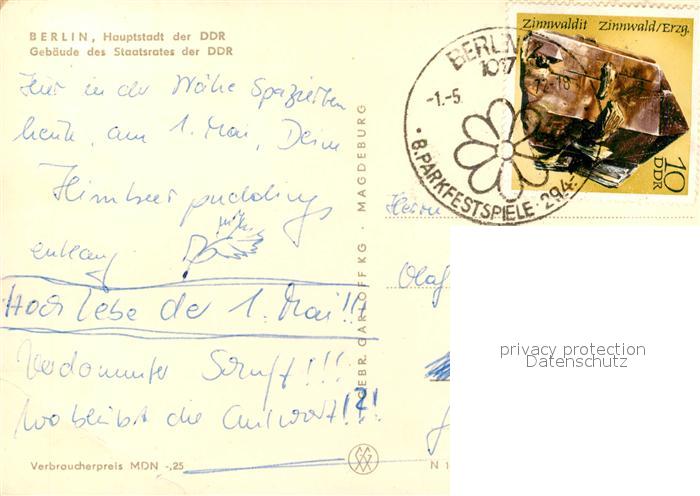 BERLIN, Hauptstadt der DDR
Gebäude des Staatsrates der DDR
Hier in der Nähe spazierten
heute, am 1. Mai, Deine
Himbeerpuddings
entlang
Hoch lebe der 1. Mai!!!
Verdammter Schuft!!!
wo bleibt die Antwort!?!
Verbraucherpreis MDN -,25
GEBR. GARLOFF KG · MAGDEBURG
Zinnwaldit Zinnwald/Erzg.
10
DDR
BERLIN
1017
-1.-5.
-18
· 8. PARKFESTSPIELE · 29.4.-
Herrn
Olaf
N 1
privacy protection
Datenschutz